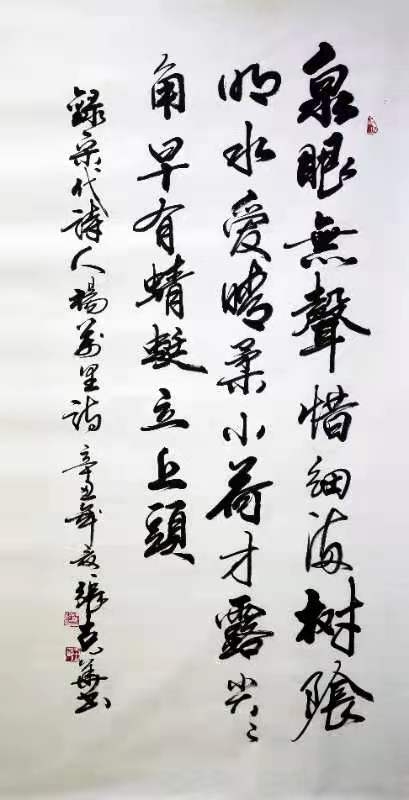 泉眼無聲惜細流树陰
照水愛晴柔小荷才露尖〻
角早有蜻蜓立上頭
錄宋代詩人楊萬里詩 辛丑年夏 張克華书